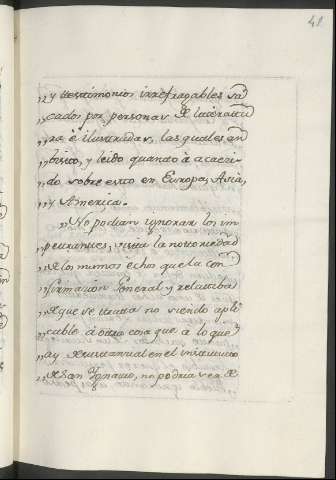 41.
,,y testimonios irrefragables sa
,,cados por personas de literatu
,,ra è ilustradas, las quales an
,,visto, y leido quanto à acaeci
,,do sobre esto en Europa, Asia,
,,y America.
,,No podian ignorar los im
,,petrantes, vista la notoriedad
,,de los mismos echos que la con
,,firmacion General y relativa
,,de que se trata no siendo apli
,,cable à otra cosa que à lo que
,,ay de en el instituto
,,de San Ignacio, no podria ser de